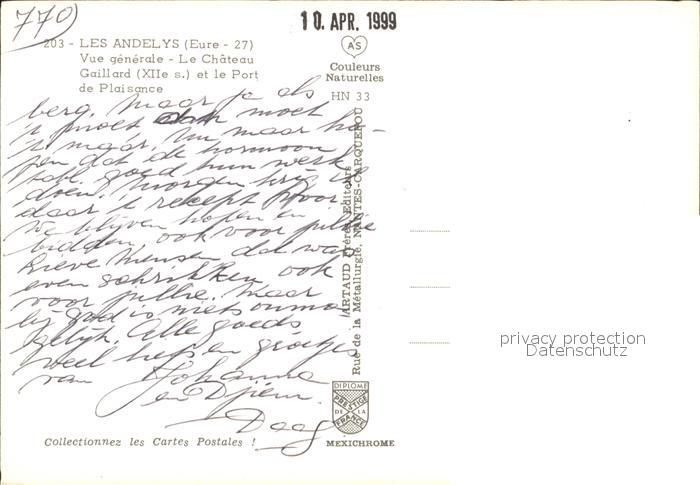 770
10. APR. 1999
203 - LES ANDELYS (Eure - 27)
Vue générale - Le Château
Gaillard (XIIe s.) et le Port
de Plaisance
AS
Couleurs
Naturelles
HN 33
berg, maar je als
't moet dan moet
't maar. Nu maar ho-
pen dat de hormoon
tabl. goed hun werk
doen. Morgen krijg ik
daar 't recept voor.
We blijven hopen en
bidden, ook voor jullie
Lieve mensen dat was
even schrikken, ook
voor jullie. Maar
bij God is niets onmo-
gelijk. Alle goeds
veel liefs en groetjes
van Johanna
en Djiem.
Daag
ARTAUD Frères, Editeurs
Rue de la Métallurgie, NANTES-CARQUEFOU
privacy protection
Datenschutz
DIPLOME
PRESTIGE
DE LA
FRANCE
MEXICHROME
Collectionnez les Cartes Postales !